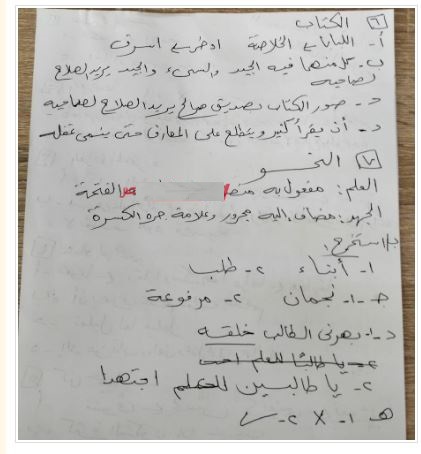 ٦) الكتاب
أ- اللباب الخلاصة
ب- كل منها فيه الجيد والسيء والجيد يريد الصلاح
لصاحبه
ج- صور الكتاب بصديق صالح يريد الصلاح لصاحبه
د- أن يقرأ كثير ويطلع على المعارف حتى ينمى عقله
٧) النحو
العلم: مفعول به الفتحة
الجهد: مضاف إليه مجرور وعلامة جره الكسرة
ب) استخرج:
١- أبناء ٢- طلب
ج- ١- نجمان ٢- مرفوعة
د- ١- بهرنى الطالب خلقه
٢- يا طالبًا للعلم
٢- يا طالبين للعلم اجتهدا
هـ ١- X ٢- ✓